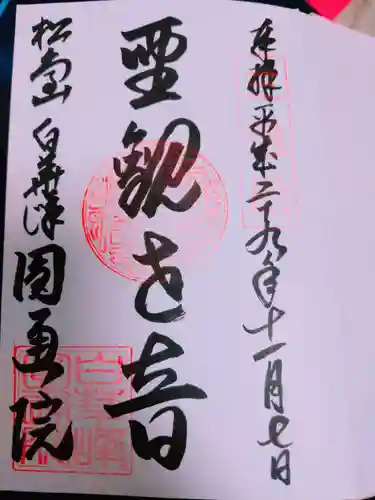 奉拝 平成二十九年十一月七日
聖観世音
松島山 白華峰 圓通院